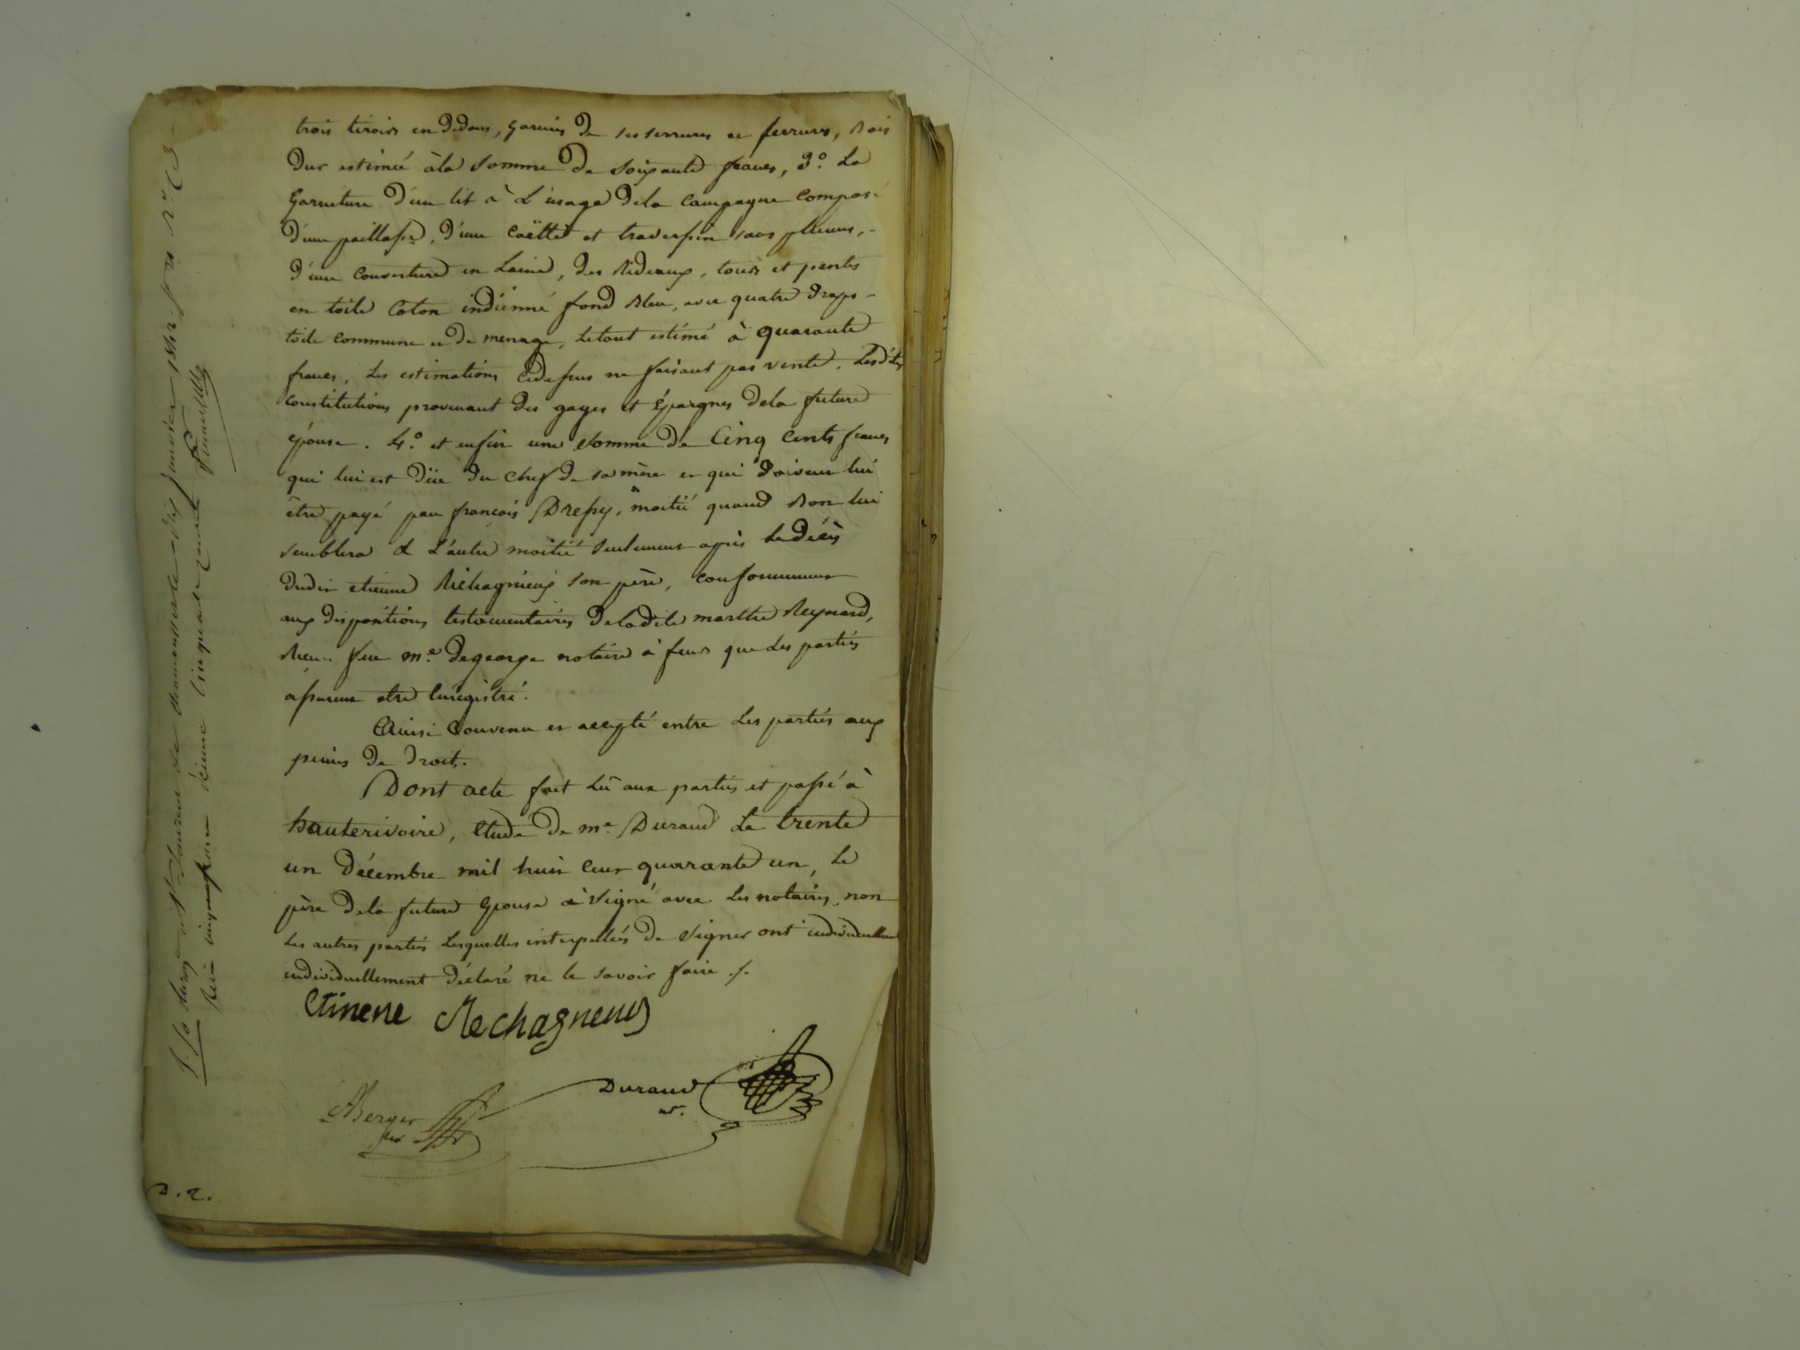 trois tiroirs en dedans, garnis de ses serrures et ferrures, Bois
dur estimée à la somme de soixante francs, 3.º La
Garniture d'un lit à L'usage de la Campagne Composé
d'une paillasse, d'une Coëtte et traversin sans plumes,
d'une Couverture en Laine, des Rideaux, tours et pentes
en toile Coton indienne fond Bleu, avec quatre draps
toile commune et de menage, Le tout estimé à quarante
francs, Les estimations Cidessus ne faisant pas vente. Lesdites
Constitutions provenant des gages et épargnes de la future
épouse. 4.º et enfin une Somme de Cinq Cents francs
qui lui est düe du chef de sa mère et qui doivent lui
être payé par françois Drefsy, moitié quand Bon lui
semblera & L'autre moitié seulement après Le décès
dudit etienne Richagneux son père, conformement
aux dispositions testamentaires de ladite marthe Reynard,
Reçu feu m.e degeorge notaire à feurs que Les parties
assurent etre Enrégistré.
Ainsi Convenu et accepté entre Les parties aux
peines de droit.
Dont acte fait Lû aux parties et passé à
hauterivoire, étude de m.e Durand Le trente
un décembre mil huit cent quarante un, Le
père de la future épouse à signé avec Les notaires, non
Les autres parties Lesquelles interpellées de Signer ont individuellement
individuellement déclaré ne le savoir faire ./.
Etinene Rechagneux
Durand
nre.
ABerger
D. 2.